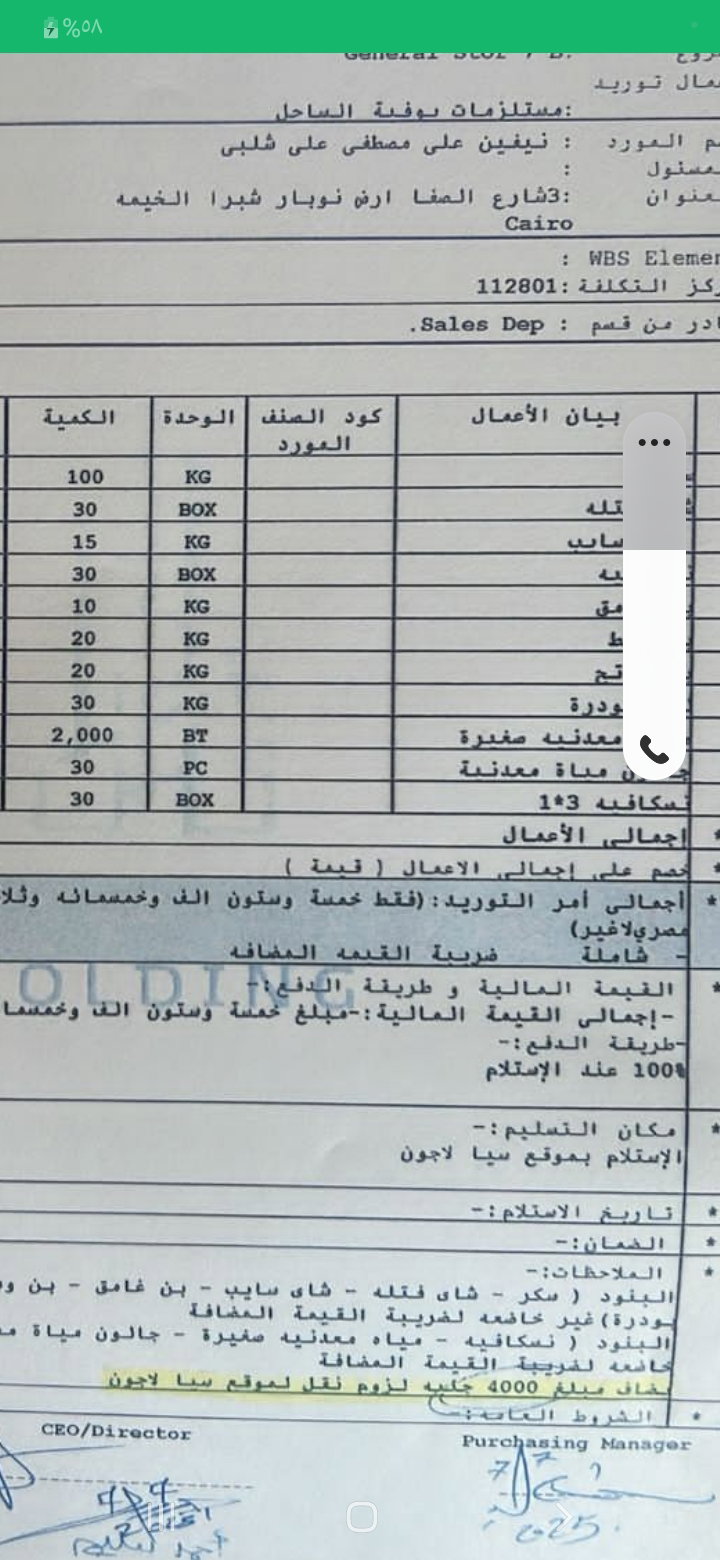 %٥٨
General Stor
توريد
:مستلزمات بوفية الساحل
المورد : نيفين على مصطفى على شلبى
:
:3شارع الصفا ارض نوبار شبرا الخيمه
Cairo
WBS Elemen :
التكلفة :112801
من قسم : Sales Dep.
بيان الأعمال كود الصنف المورد الوحدة الكمية
KG 100
BOX 30
سايب KG 15
BOX 30
KG 10
KG 20
KG 20
KG 30
معدنيه صغيرة BT 2,000
مياة معدنية PC 30
نسكافيه 3*1 BOX 30
* إجمالى الأعمال
* خصم على إجمالى الاعمال ( قيمة )
* أجمالى أمر التوريد:(فقط خمسة وستون الف وخمسمائه
مصريلاغير)
- شاملة ضريبة القيمه المضافه
OLDING
* القيمة المالية و طريقة الدفع:-
-إجمالى القيمة المالية:-مبلغ خمسة وستون الف
-طريقة الدفع:-
100% عند الإستلام
* مكان التسليم:-
الإستلام بموقع سيا لاجون
* تاريخ الاستلام:-
* الضمان:-
* الملاحظات:-
البنود ( سكر - شاى فتله - شاى سايب - بن غامق - بن
بودرة)غير خاضعه لضريبة القيمة المضافة
البنود ( نسكافيه - مياه معدنيه صغيرة - جالون مياة
خاضعه لضريبة القيمة المضافة
يضاف مبلغ 4000 جنيه لزوم نقل لموقع سيا لاجون
* الشروط العامه:-
CEO/Director
Purchasing Manager
2025